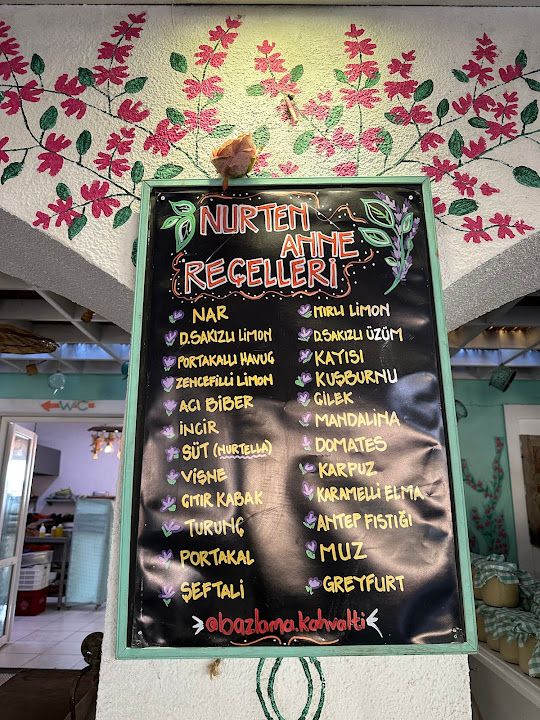 NURTEN
ANNE
REÇELLERİ
NAR
D.SAKIZLI LİMON
PORTAKALLI HAVUÇ
ZENCEFİLLİ LİMON
ACI BİBER
İNCİR
SÜT (NURTELLA)
VİŞNE
ÇITIR KABAK
TURUNÇ
PORTAKAL
ŞEFTALİ
MIRLI LİMON
D.SAKIZLI ÜZÜM
KAYISI
KUŞBURNU
ÇİLEK
MANDALİNA
DOMATES
KARPUZ
KARAMELLİ ELMA
ANTEP FISTIĞI
MUZ
GREYFURT
@bazlama.kahvalti
WC